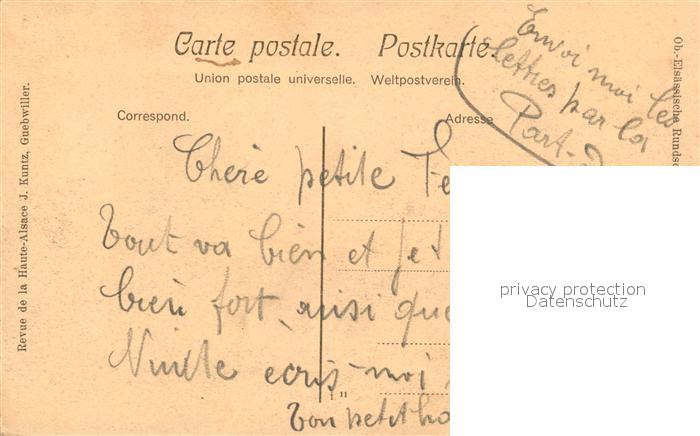 Carte postale. Postkarte.
Union postale universelle. Weltpostverein.
Correspond.
Adresse
Envoi moi les
lettres par la
Part-
Chère petite Fe
Tout va bien et je t
bien fort, ainsi que
écris-moi
Ton petit ho
Revue de la Haute-Alsace J. Kuntz, Guebwiller.
Ob.-Elsässische Rundsc
privacy protection
Datenschutz